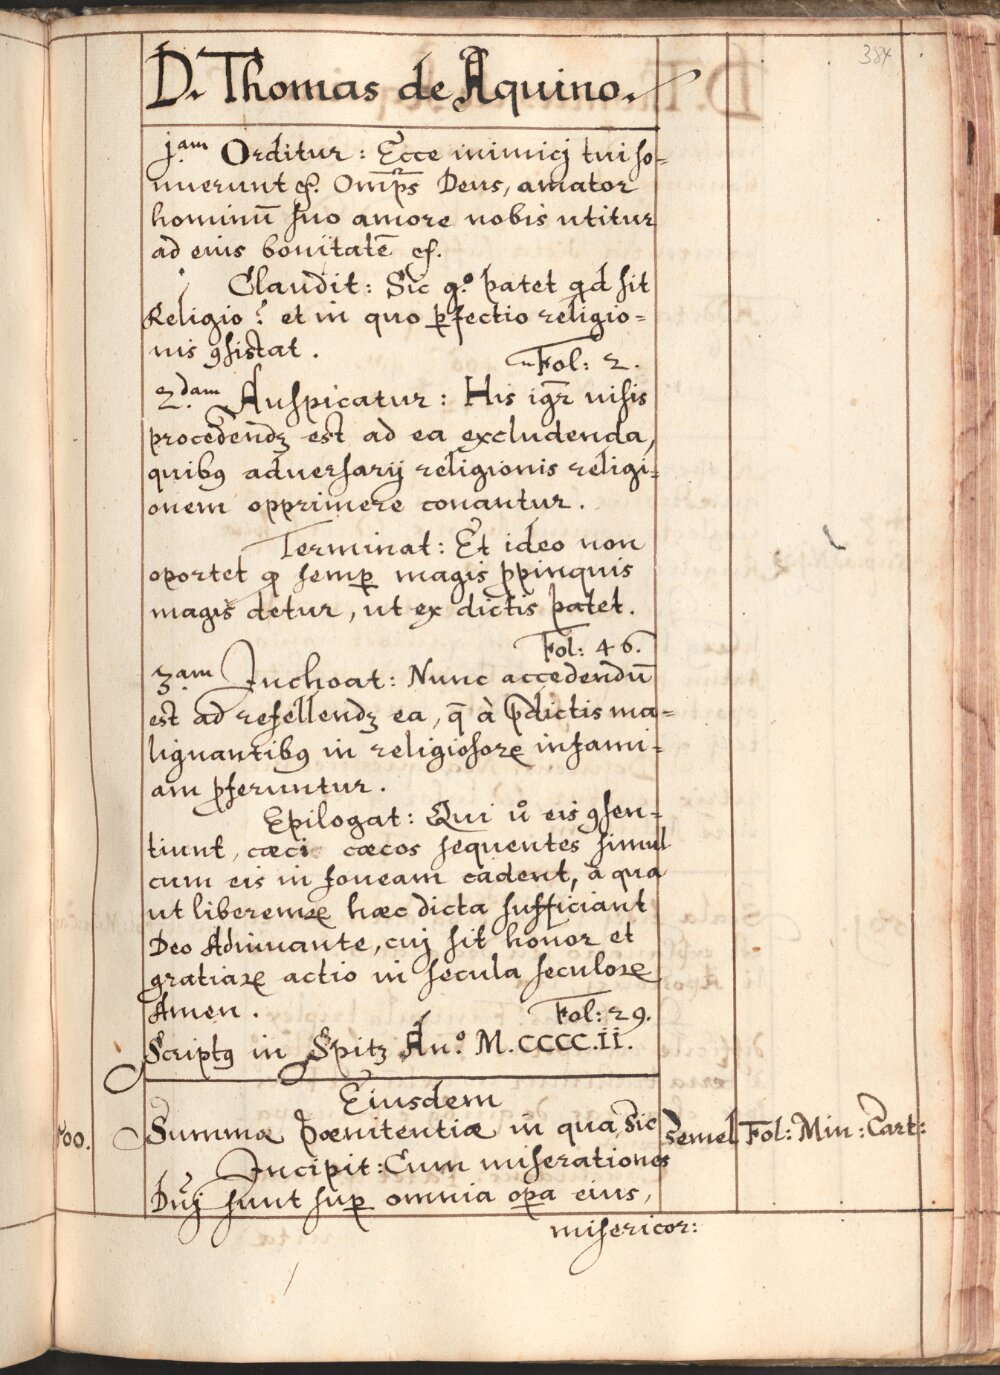 384
D. Thomas de Aquino.
jam Orditur: Ecce inimicj tui so-
nuerunt ec. Omps Deus, amator
hominū suo amore nobis utitur
ad eius bonitatē ec.
Claudit: Sic gͦ. patet qd sit
Religio? et in quo pfectio religio-
nis ꝯsistat.
Fol: 2.
2dam Auspicatur: His igr visis
procedendȝ est ad ea excludenda,
quibꝯ adversarij religionis religi-
onem opprimere conantur.
Terminat: Et ideo non
oportet ꝙ semꝑ magis ꝓpinquis
magis detur, ut ex dictis patet.
Fol: 46.
3am Inchoat: Nunc accedendū
est ad refellendȝ ea, q̄ à p̄dictis ma-
lignantibꝯ in religiosoꝝ infami-
am ꝓferuntur.
Epilogat: Qui ůo eis ꝯsen-
tiunt, cæci cæcos sequentes simul
cum eis in foveam cadent, à qua
ut liberemꝝ hæc dicta sufficiant
Deo Adiuuante, cuj sit honor et
gratiaꝝ actio in secula seculoꝝ
Amen.
Fol: 29.
Scriptꝯ in Spitz An.º M.CCCC.II.
Eiusdem
700.
Summa Pœnitentiæ in qua sic
Semel
Fol: Min: Cart:
Incipit: Cum miserationes
Dnj sunt suꝑ omnia oꝑa eius,
misericor: